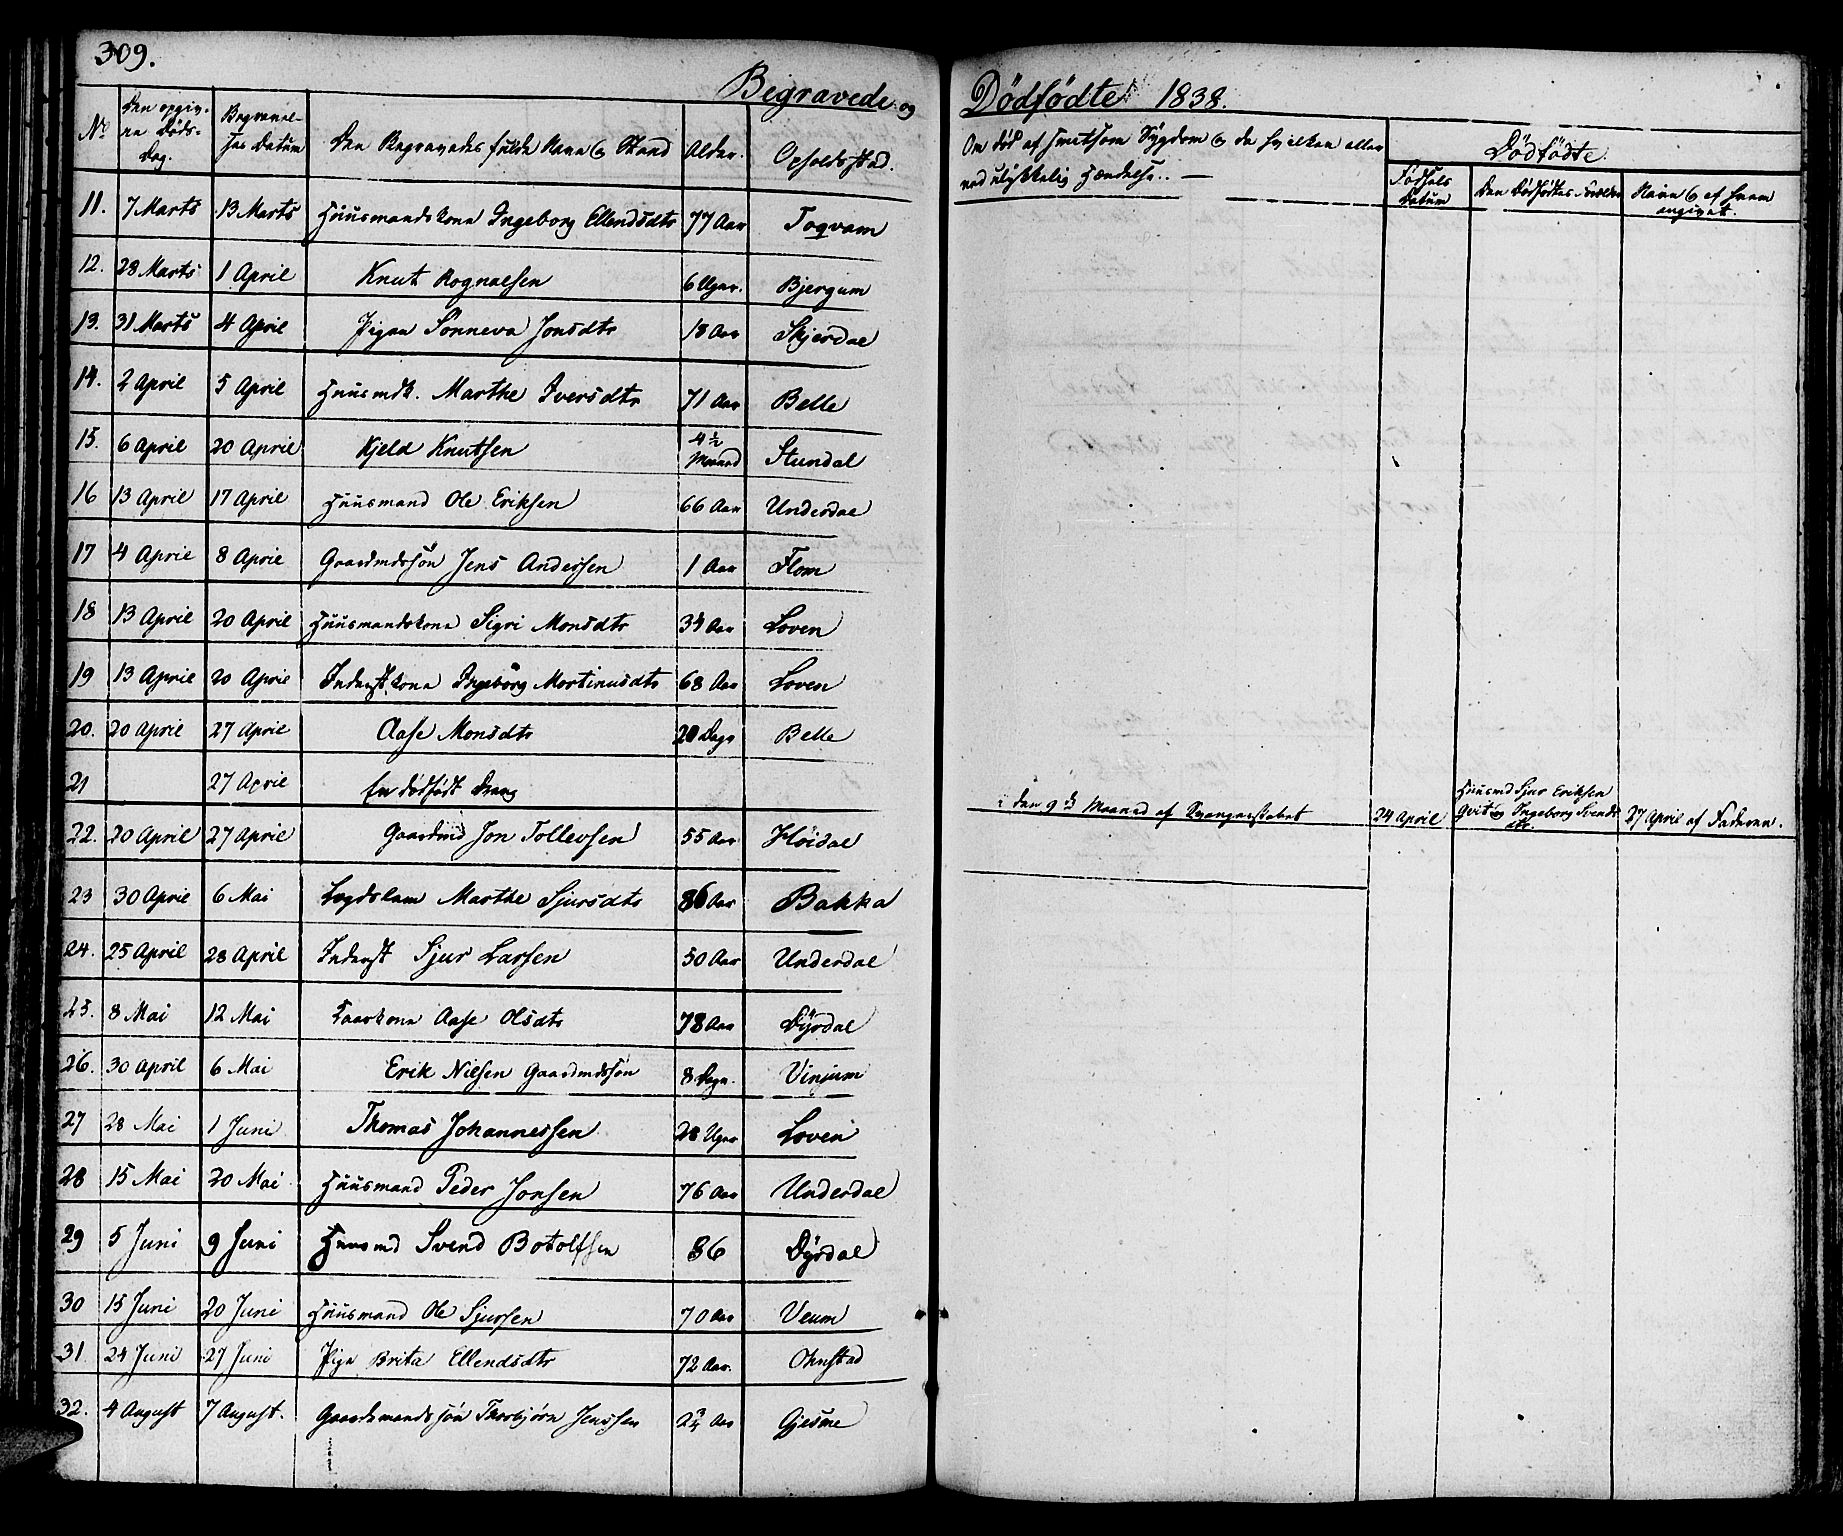 309.
Begravede og Dödfödte 1838.
No
Den opgivne Döds-Dag.
Begravelses Datum
Den Begravedes fulde Navn og Stand
Alder.
Opholdssted.
Om död af smitsom Sygdom og da hvilken eller ved ulykkelig Hændelse. —
Dödfödte.
Födsels Datum
Den Dödfödtes Forældre
Navn og af hvem angivet.
11. 7 Marts 13 Marts Huusmandskone Ingeborg Ellendsdtr 77 Aar Toqvam
12. 28 Marts 1 April Knut Rognalsen 6 Uger. Bjergum
13. 31 Marts 4 April Pigen Sönneva Jonsdtr 18 Aar Skjerdal
14. 2 April 5 April Huusmdk. Marthe Iversdtr 71 Aar Belle
15. 6 April 20 April Kjeld Knutsen 4½ Maaned Stundal
16 13 April 17 April Huusmand Ole Eriksen 66 Aar Underdal
17 4 April 8 April Gaardmdssön Jens Andersen 1 Aar Flom
18 13 April 20 April Huusmandskone Sigri Monsdtr 34 Aar Loven
19 13 April 20 April Inderstkone Ingeborg Mortinusdtr 68 Aar Loven
20. 20 April 27 April Aase Monsdtr Dage Belle
21 27 April En dödfödt Dreng i den 9de Maaned af Svangerskabet 24 April Huusmd Sjur Eriksen Qvit og Ingeborg Svendsdtr. 27 April af Faderen.
22. 20 April 27 April Gaardmd Jon Tollevsen 55 Aar Höidal
23 30 April 6 Mai Legdslem Marthe Sjursdtr 86 Aar Bakka
24. 25 April 28 April Inderst Sjur Larsen 50 Aar Underdal
25. 8 Mai 12 Mai Kaarkone Aase Olsdtr 78 Aar Dyrdal
26. 30 April 6 Mai Erik Nielsen Gaardmdssön 8 Dage. Vinjum
27 28 Mai 1 Juni Thomas Johannessen 28 Uger Loven
28 15 Mai 20 Mai Huusmand Peder Jonsen 76 Aar Underdal
29 5 Juni 9 Juni Huusmd Svend Botolfsen 86 Dyrdal
30 15 Juni 20 Juni Huusmand Ole Sjursen 70 Aar Veum
31. 24 Juni 27 Juni Pige Brita Ellendsdtr 72 Aar. Ohnstad
32. 4 August 7 August. Gaardsmandssön Thorbjörn Jenssen Aar Gjesme